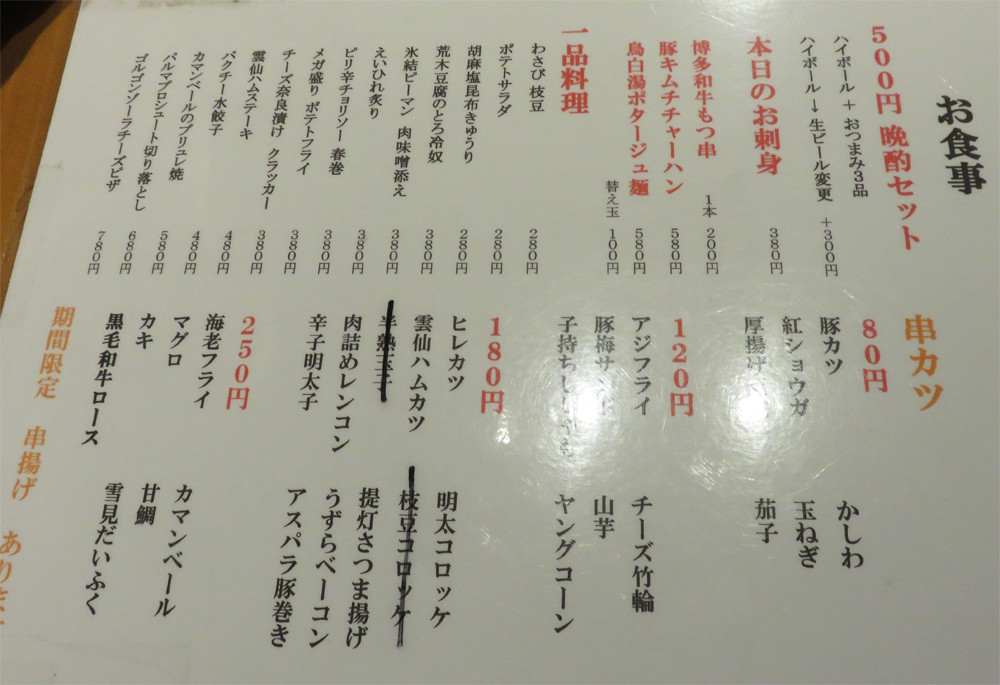 お食事
500円 晩酌セット
ハイボール + おつまみ3品
ハイボール → 生ビール変更 +300円
本日のお刺身 380円
博多和牛もつ串 1本 200円
豚キムチチャーハン 580円
鳥白湯ポタージュ麺 580円
替え玉 100円
一品料理
わさび 枝豆 280円
ポテトサラダ 280円
胡麻塩昆布きゅうり 280円
荒木豆腐のとろ冷奴 380円
氷結ピーマン 肉味噌添え 380円
えいひれ炙り 380円
ピリ辛チョリソー 春巻 380円
メガ盛り ポテトフライ 380円
チーズ奈良漬け クラッカー 380円
雲仙ハムステーキ 480円
パクチー水餃子 480円
カマンベールのブリュレ焼 580円
パルマプロシュート切り落とし 680円
ゴルゴンゾーラチーズピザ 780円
串カツ
80円
豚カツ かしわ
紅ショウガ 玉ねぎ
厚揚げ 茄子
120円
アジフライ チーズ竹輪
豚梅サンド 山芋
子持ちししゃも ヤングコーン
180円
ヒレカツ 明太コロッケ
雲仙ハムカツ 枝豆コロッケ
半熟玉子 提灯さつま揚げ
肉詰めレンコン うずらベーコン
辛子明太子 アスパラ豚巻き
250円
海老フライ カマンベール
マグロ 甘鯛
カキ 雪見だいふく
黒毛和牛ロース
期間限定 串揚げ あります